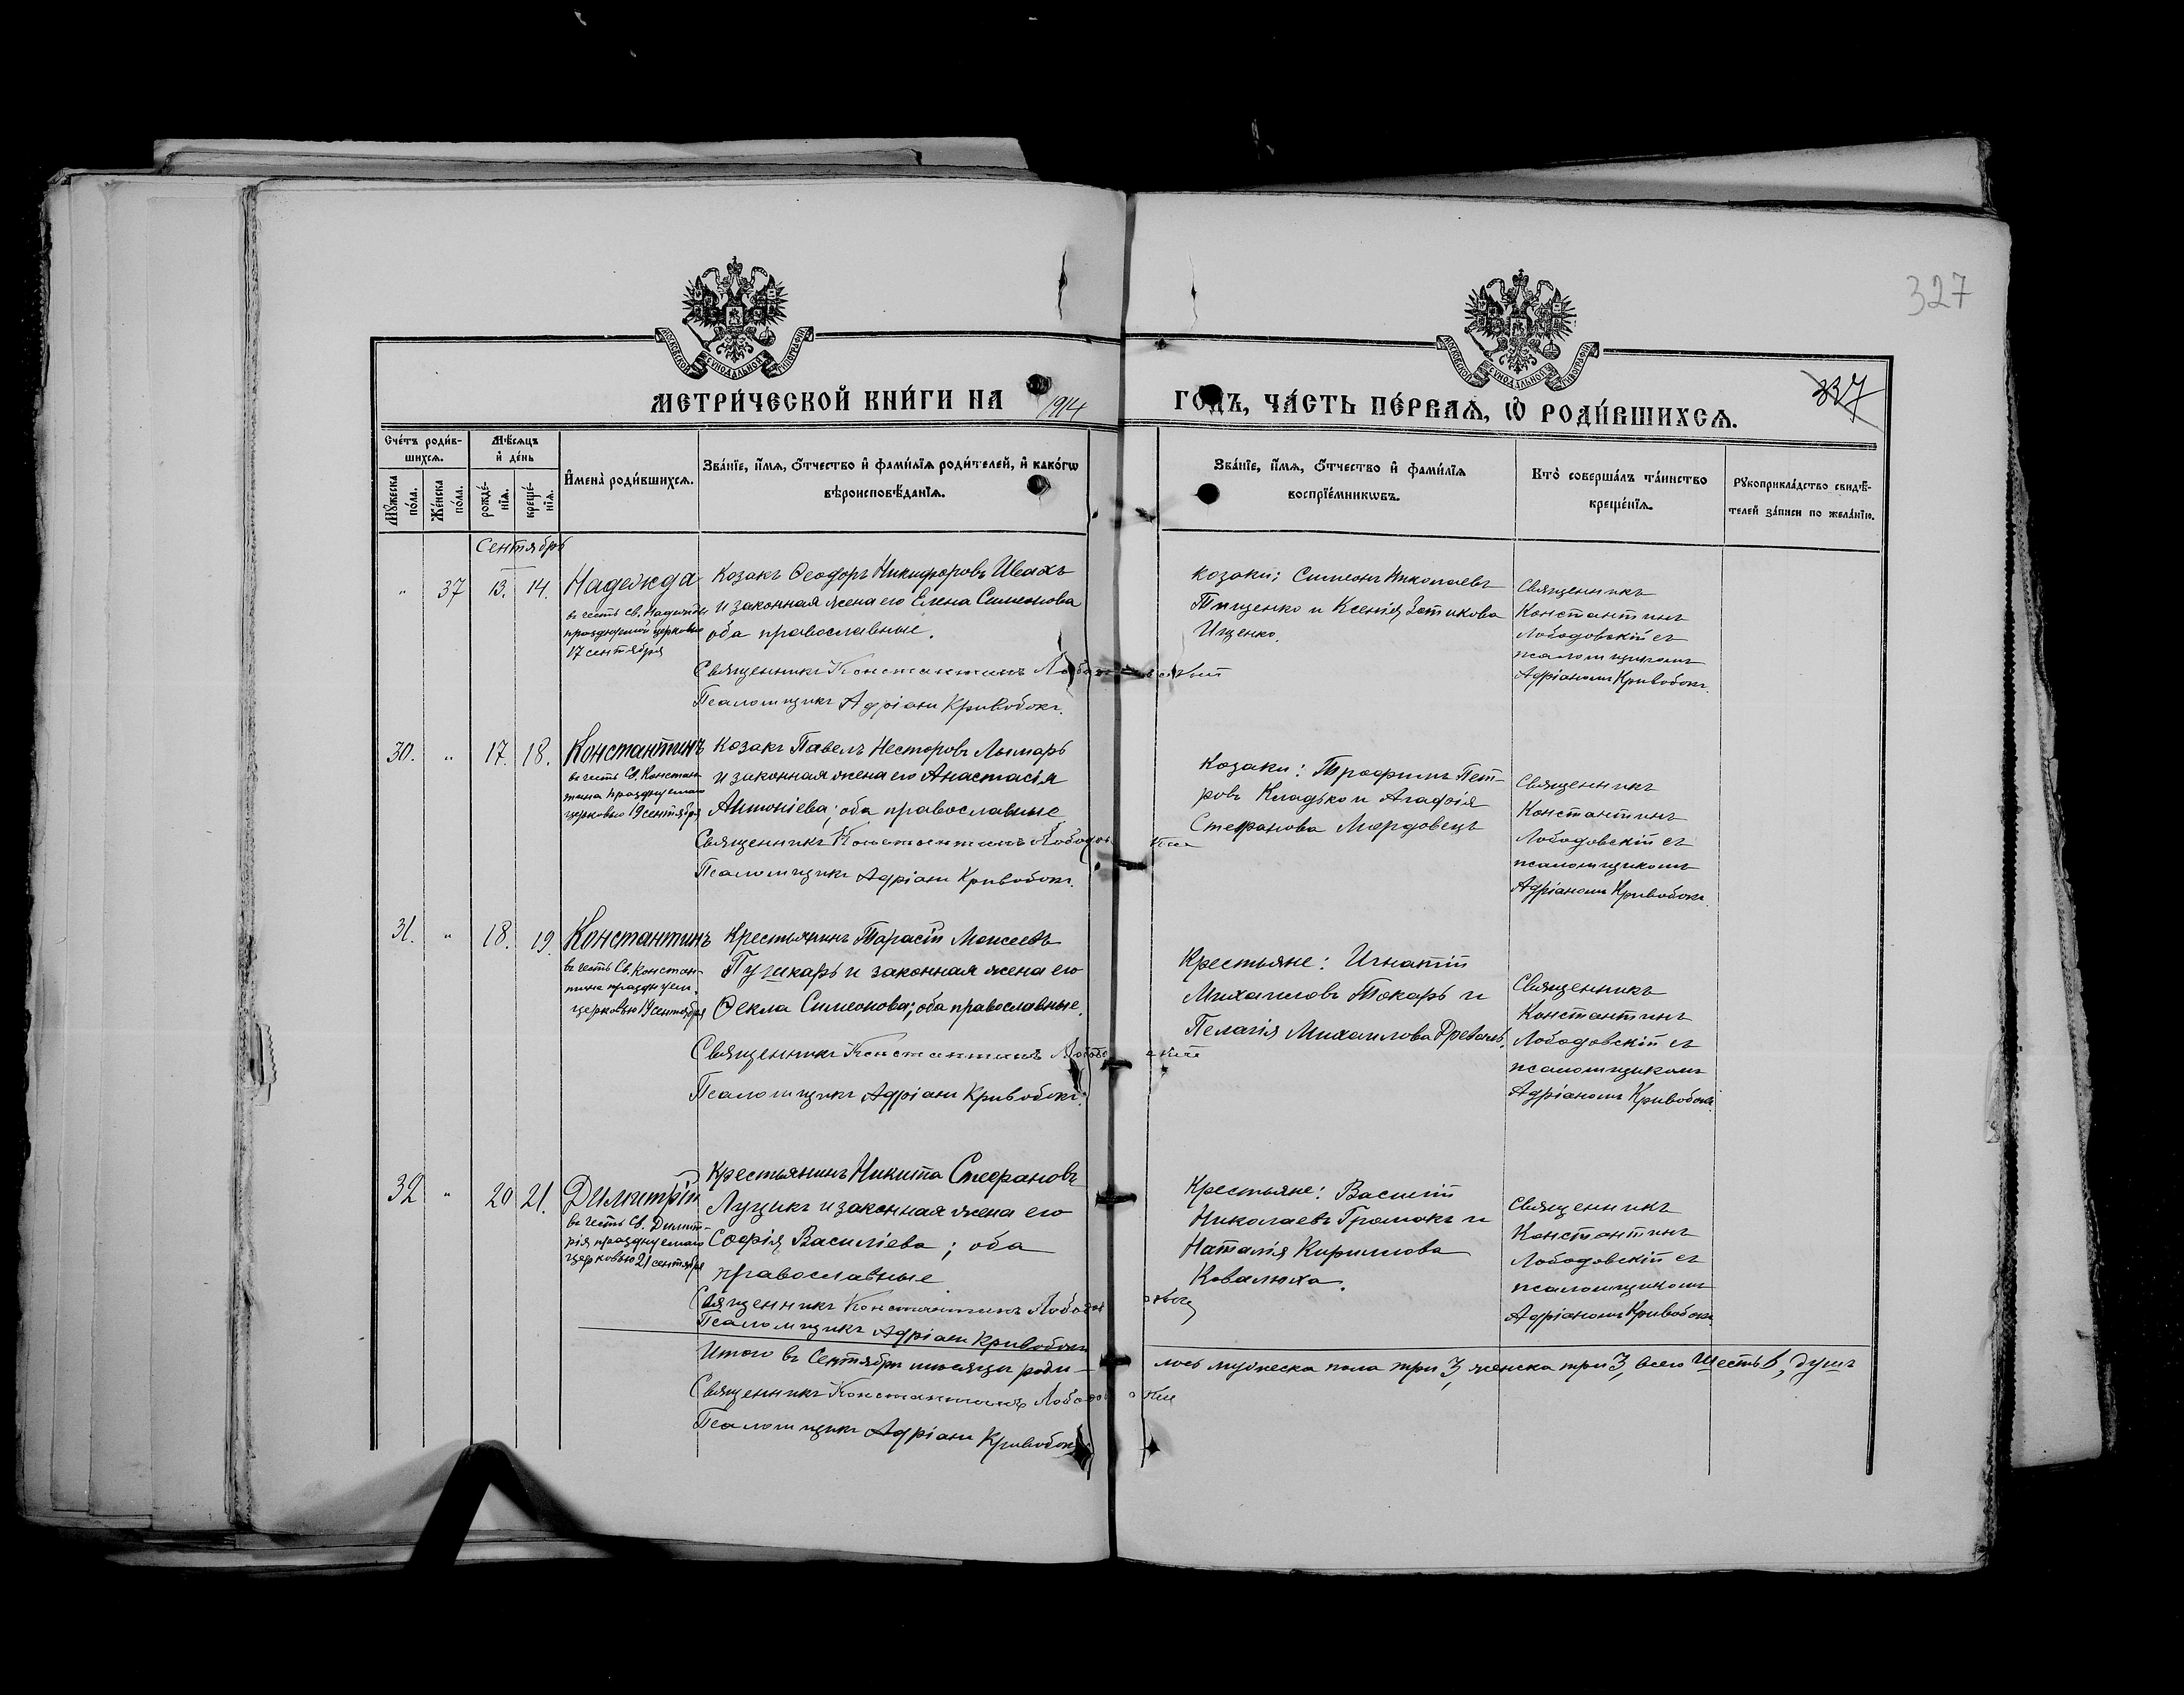 327
МОСКОВСКОЙ СѴНОДАЛЬНОЙ ТИПОГРАФІИ
МОСКОВСКОЙ СѴНОДАЛЬНОЙ ТИПОГРАФІИ
МЕТРИ́ЧЕСКОЙ КНИ́ГИ НА 1914 ГОДЪ, ЧА́СТЬ ПЕ́РВАѦ, Ѡ РОДИ́ВШИХСѦ.
337
Сче́тъ роди́в-
шихсѧ.
Мꙋжеска
по́ла.
Же́нска
по́ла.
Мѣ́сѧцъ
и҆ де́нь
рожде́-
нїѧ.
креще́-
нїѧ.
И҆мена̀ роди́вшихсѧ.
Зва́нїе, и҆́мѧ, ѻ҆́тчество и҆ фами́лїѧ роди́телей, и҆ како́гѡ
вѣроисповѣ́данїѧ.
Зва́нїе, и҆́мѧ, ѻ҆́тчество и҆ фами́лїѧ
воспрїе́мникѡвъ.
Кто̀ соверша́лъ та́инство
креще́нїѧ.
Рꙋкоприкла́дство свидѣ́-
телей за́писи по жела́нїю.
Сентябрь
" 37 13. 14. Надежда
въ честь Св. Надежды
празднуемой церковью
17 сентября
Козакъ Ѳеодоръ Никифоровъ Ивахъ
и законная жена его Елена Симеонова
оба православные.
Священникъ Константинъ Лободовскій
Псаломщикъ Адріанъ Кривобокъ.
Козаки: Симеонъ Николаевъ
Тищенко и Ксенія Зотикова
Ищенко.
Священникъ
Константинъ
Лободовскій съ
псаломщикомъ
Адріаномъ Кривобокъ.
30. " 17. 18. Константинъ
въ честь Св. Констан-
тина празднуемаго
церковью 19 сентября
Козакъ Павелъ Несторовъ Лымарь
и законная жена его Анастасія
Антоніева; оба православные
Священникъ Константинъ Лободовскій
Псаломщикъ Адріанъ Кривобокъ.
Козаки: Трофимъ Пет-
ровъ Кладько и Агафія
Стефанова Мордовецъ
Священникъ
Константинъ
Лободовскій съ
псаломщикомъ
Адріаномъ Кривобокъ.
31. " 18. 19. Константинъ
въ честь Св. Констан-
тина празднуем.
церковью 19 сентября
Крестьянинъ Тарасій Моисеевъ
Пушкарь и законная жена его
Ѳекла Симеонова; оба православные.
Священникъ Константинъ Лободовскій
Псаломщикъ Адріанъ Кривобокъ.
Крестьяне: Игнатій
Михаиловъ Токарь и
Пелагія Михаилова Древаль.
Священникъ
Константинъ
Лободовскій съ
псаломщикомъ
Адріаномъ Кривобокъ.
32 " 20 21. Димитрій
въ честь Св. Димит-
рія празднуемаго
церковью 21 сентября
Крестьянинъ Никита Стефановъ
Луцикъ и законная жена его
Софія Василіева; оба
православные
Священникъ Константинъ Лободовскій
Псаломщикъ Адріанъ Кривобокъ
Крестьяне: Василій
Николаевъ Громокъ и
Наталія Кириллова
Ковалюха.
Священникъ
Константинъ
Лободовскій съ
псаломщикомъ
Адріаномъ Кривобокъ.
Итого въ Сентябрѣ мѣсяцѣ роди-лось мужеска пола три 3, женска три 3, всего шесть 6, душъ
Священникъ Константинъ Лободовскій
Псаломщикъ Адріанъ Кривобокъ